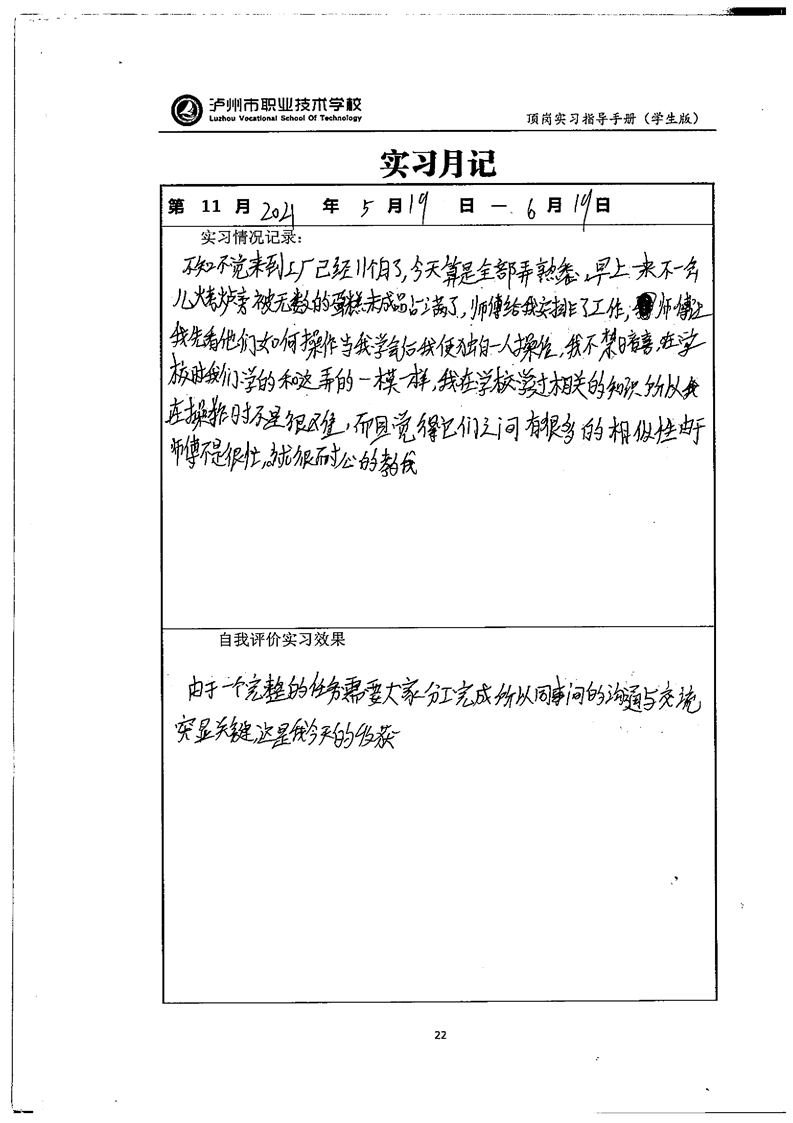 泸州市职业技术学校
Luzhou Vocational School Of Technology
顶岗实习指导手册（学生版）
实习月记
第 11 月 2021 年 5 月 19 日 — 6 月 19 日
实习情况记录：
不知不觉来到工厂已经11个月了,今天算是全部弄熟悉,早上一来不一会
儿烤炉旁被无数的蛋糕未成品占满了,师傅给我安排了工作, 师傅让
我先看他们如何操作当我学会后我便独自一人操作,我不禁暗喜,在学
校时我们学的和这弄的一模一样,我在学校学过相关的知识所以我
在操作时不是很难,而且觉得它们之间有很多的相似性由于
师傅不是很忙,就很耐心的教我
自我评价实习效果
由于一个完整的任务需要大家分工完成所以同事间的沟通与交流
突显关键,这是我今天的收获
22